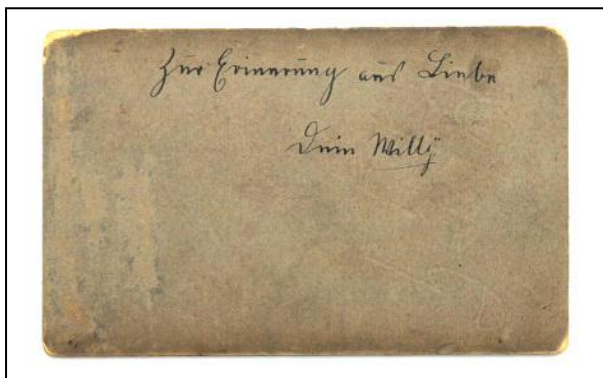 Zur Erinnerung aus Liebe
Dein Willÿ